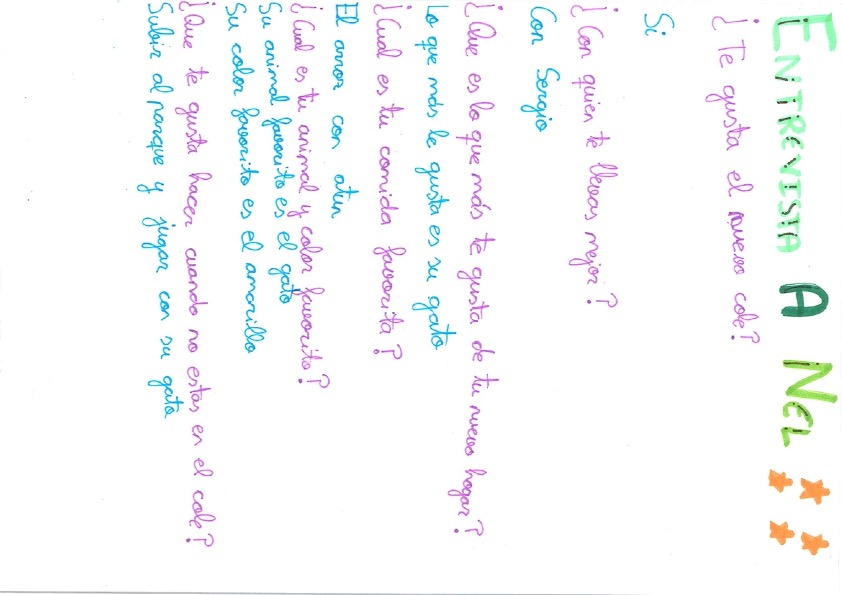 ENTREVISTA A NEL
¿Te gusta el nuevo cole?
Si
¿Con quien te llevas mejor?
Con Sergio
¿Que es lo que más te gusta de tu nuevo hogar?
Lo que más le gusta es su gato
¿Cual es tu comida favorita?
El arroz con atun
¿Cual es tu animal y color favorito?
Su animal favorito es el gato
Su color favorito es el amarillo
¿Que te gusta hacer cuando no estas en el cole?
Subir al parque y jugar con su gato